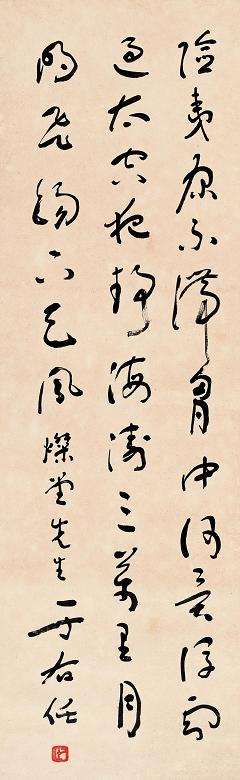 險夷原不滯胷中何異浮雲
過太空夜靜海濤三萬里月
明飛錫下天風燦堂先生于右任